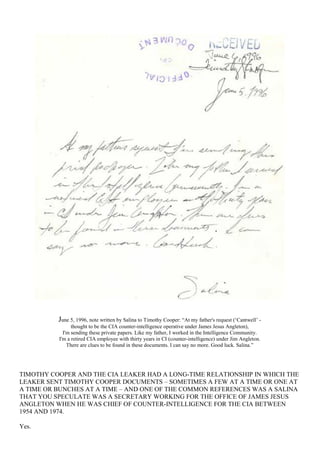 DOCUMENT
CIA
OFFICIAL
RECEIVED
June 6, 1996
Timothy Cooper
June 5, 1996
At my fathers request I'm sending these
privat papers. Like my father I worked
in the Intelligence Community. I'm a
retired CIA employee with thirty years
in CI under Jim Angleton. There are clues
to be found in these documents. I can
say no more. Good luck.
Salina
June 5, 1996, note written by Salina to Timothy Cooper: "At my father's request ('Cantwell' -
thought to be the CIA counter-intelligence operative under James Jesus Angleton),
I'm sending these private papers. Like my father, I worked in the Intelligence Community.
I'm a retired CIA employee with thirty years in CI (counter-intelligence) under Jim Angleton.
There are clues to be found in these documents. I can say no more. Good luck. Salina."
TIMOTHY COOPER AND THE CIA LEAKER HAD A LONG-TIME RELATIONSHIP IN WHICH THE
LEAKER SENT TIMOTHY COOPER DOCUMENTS – SOMETIMES A FEW AT A TIME OR ONE AT
A TIME OR BUNCHES AT A TIME – AND ONE OF THE COMMON REFERENCES WAS A SALINA
THAT YOU SPECULATE WAS A SECRETARY WORKING FOR THE OFFICE OF JAMES JESUS
ANGLETON WHEN HE WAS CHIEF OF COUNTER-INTELLIGENCE FOR THE CIA BETWEEN
1954 AND 1974.
Yes.